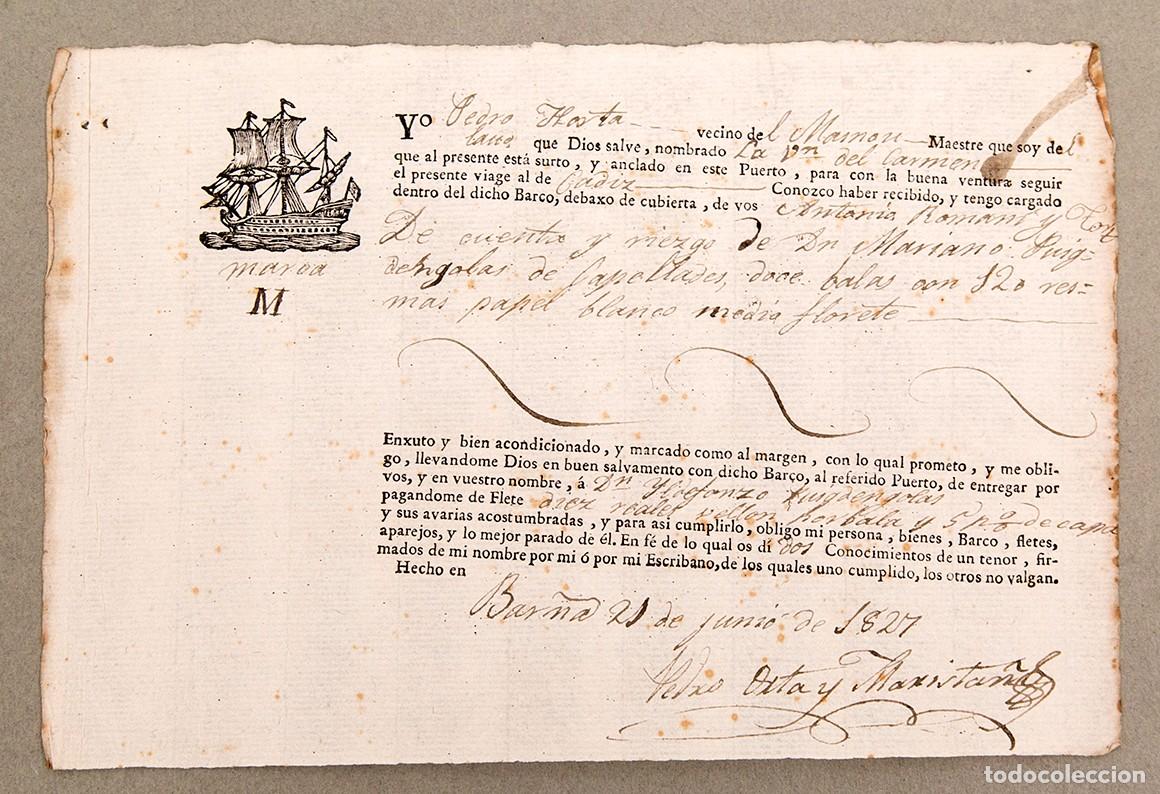 Yo Pedro Horta vecino del Masnou Maestre que soy del
laud que Dios salve, nombrado La Vn del Carmen
que al presente está surto, y anclado en este Puerto, para con la buena ventura seguir
el presente viage al de Cadiz Conozco haber recibido, y tengo cargado
dentro del dicho Barco, debaxo de cubierta, de vos Antonio Romaní y
De cuenta y riezgo de Dn Mariano Puig-
dengolas de Capellades, doce balas con 120 res-
mas papel blanco medio florete
marca
M
Enxuto y bien acondicionado, y marcado como al margen, con lo qual prometo, y me obli-
go, llevandome Dios en buen salvamento con dicho Barco, al referido Puerto, de entregar por
vos, y en vuestro nombre, á Dn Yldefonzo Puigdengolas
pagandome de Flete diez reales vellon por bala y 5 p% de capa
y sus avarias acostumbradas, y para asi cumplirlo, obligo mi persona, bienes, Barco, fletes,
aparejos, y lo mejor parado de él. En fé de lo qual os dí dos Conocimientos de un tenor, fir-
mados de mi nombre por mi ó por mi Escribano, de los quales uno cumplido, los otros no valgan.
Hecho en
Barña 21 de junio de 1827
Pedro Orta y Maristañ
todocoleccion